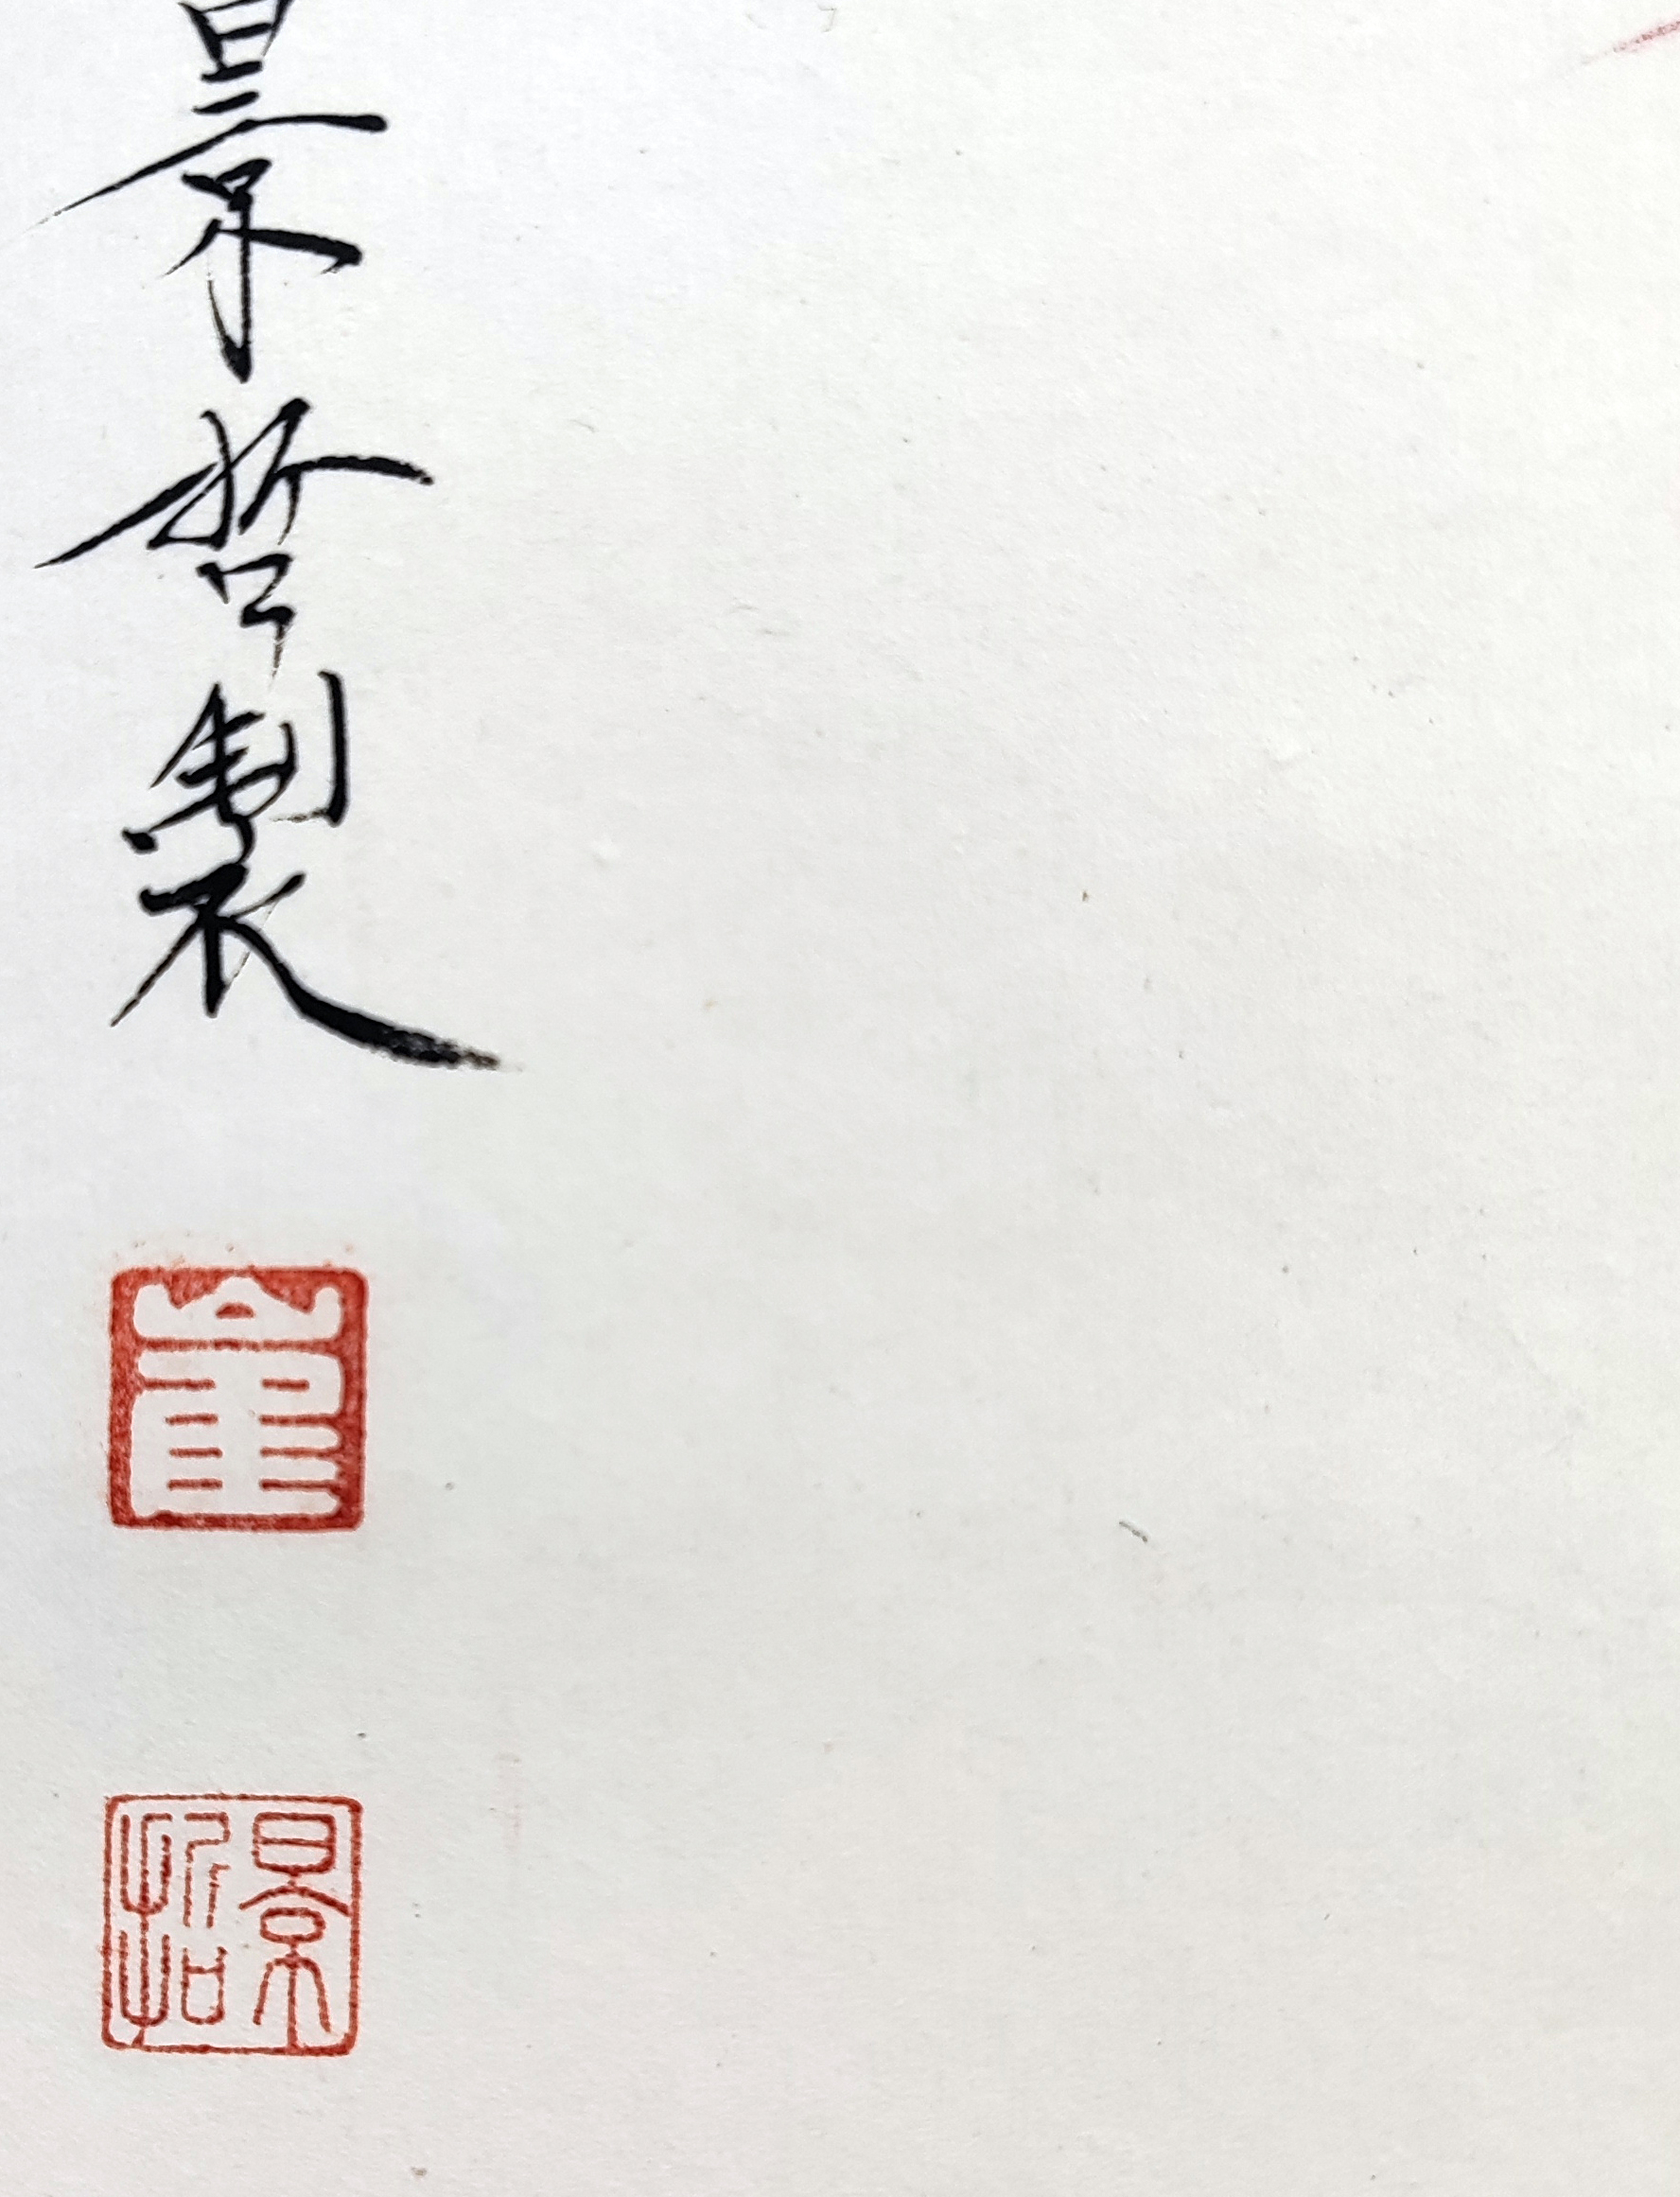 景哲製
崔
景哲